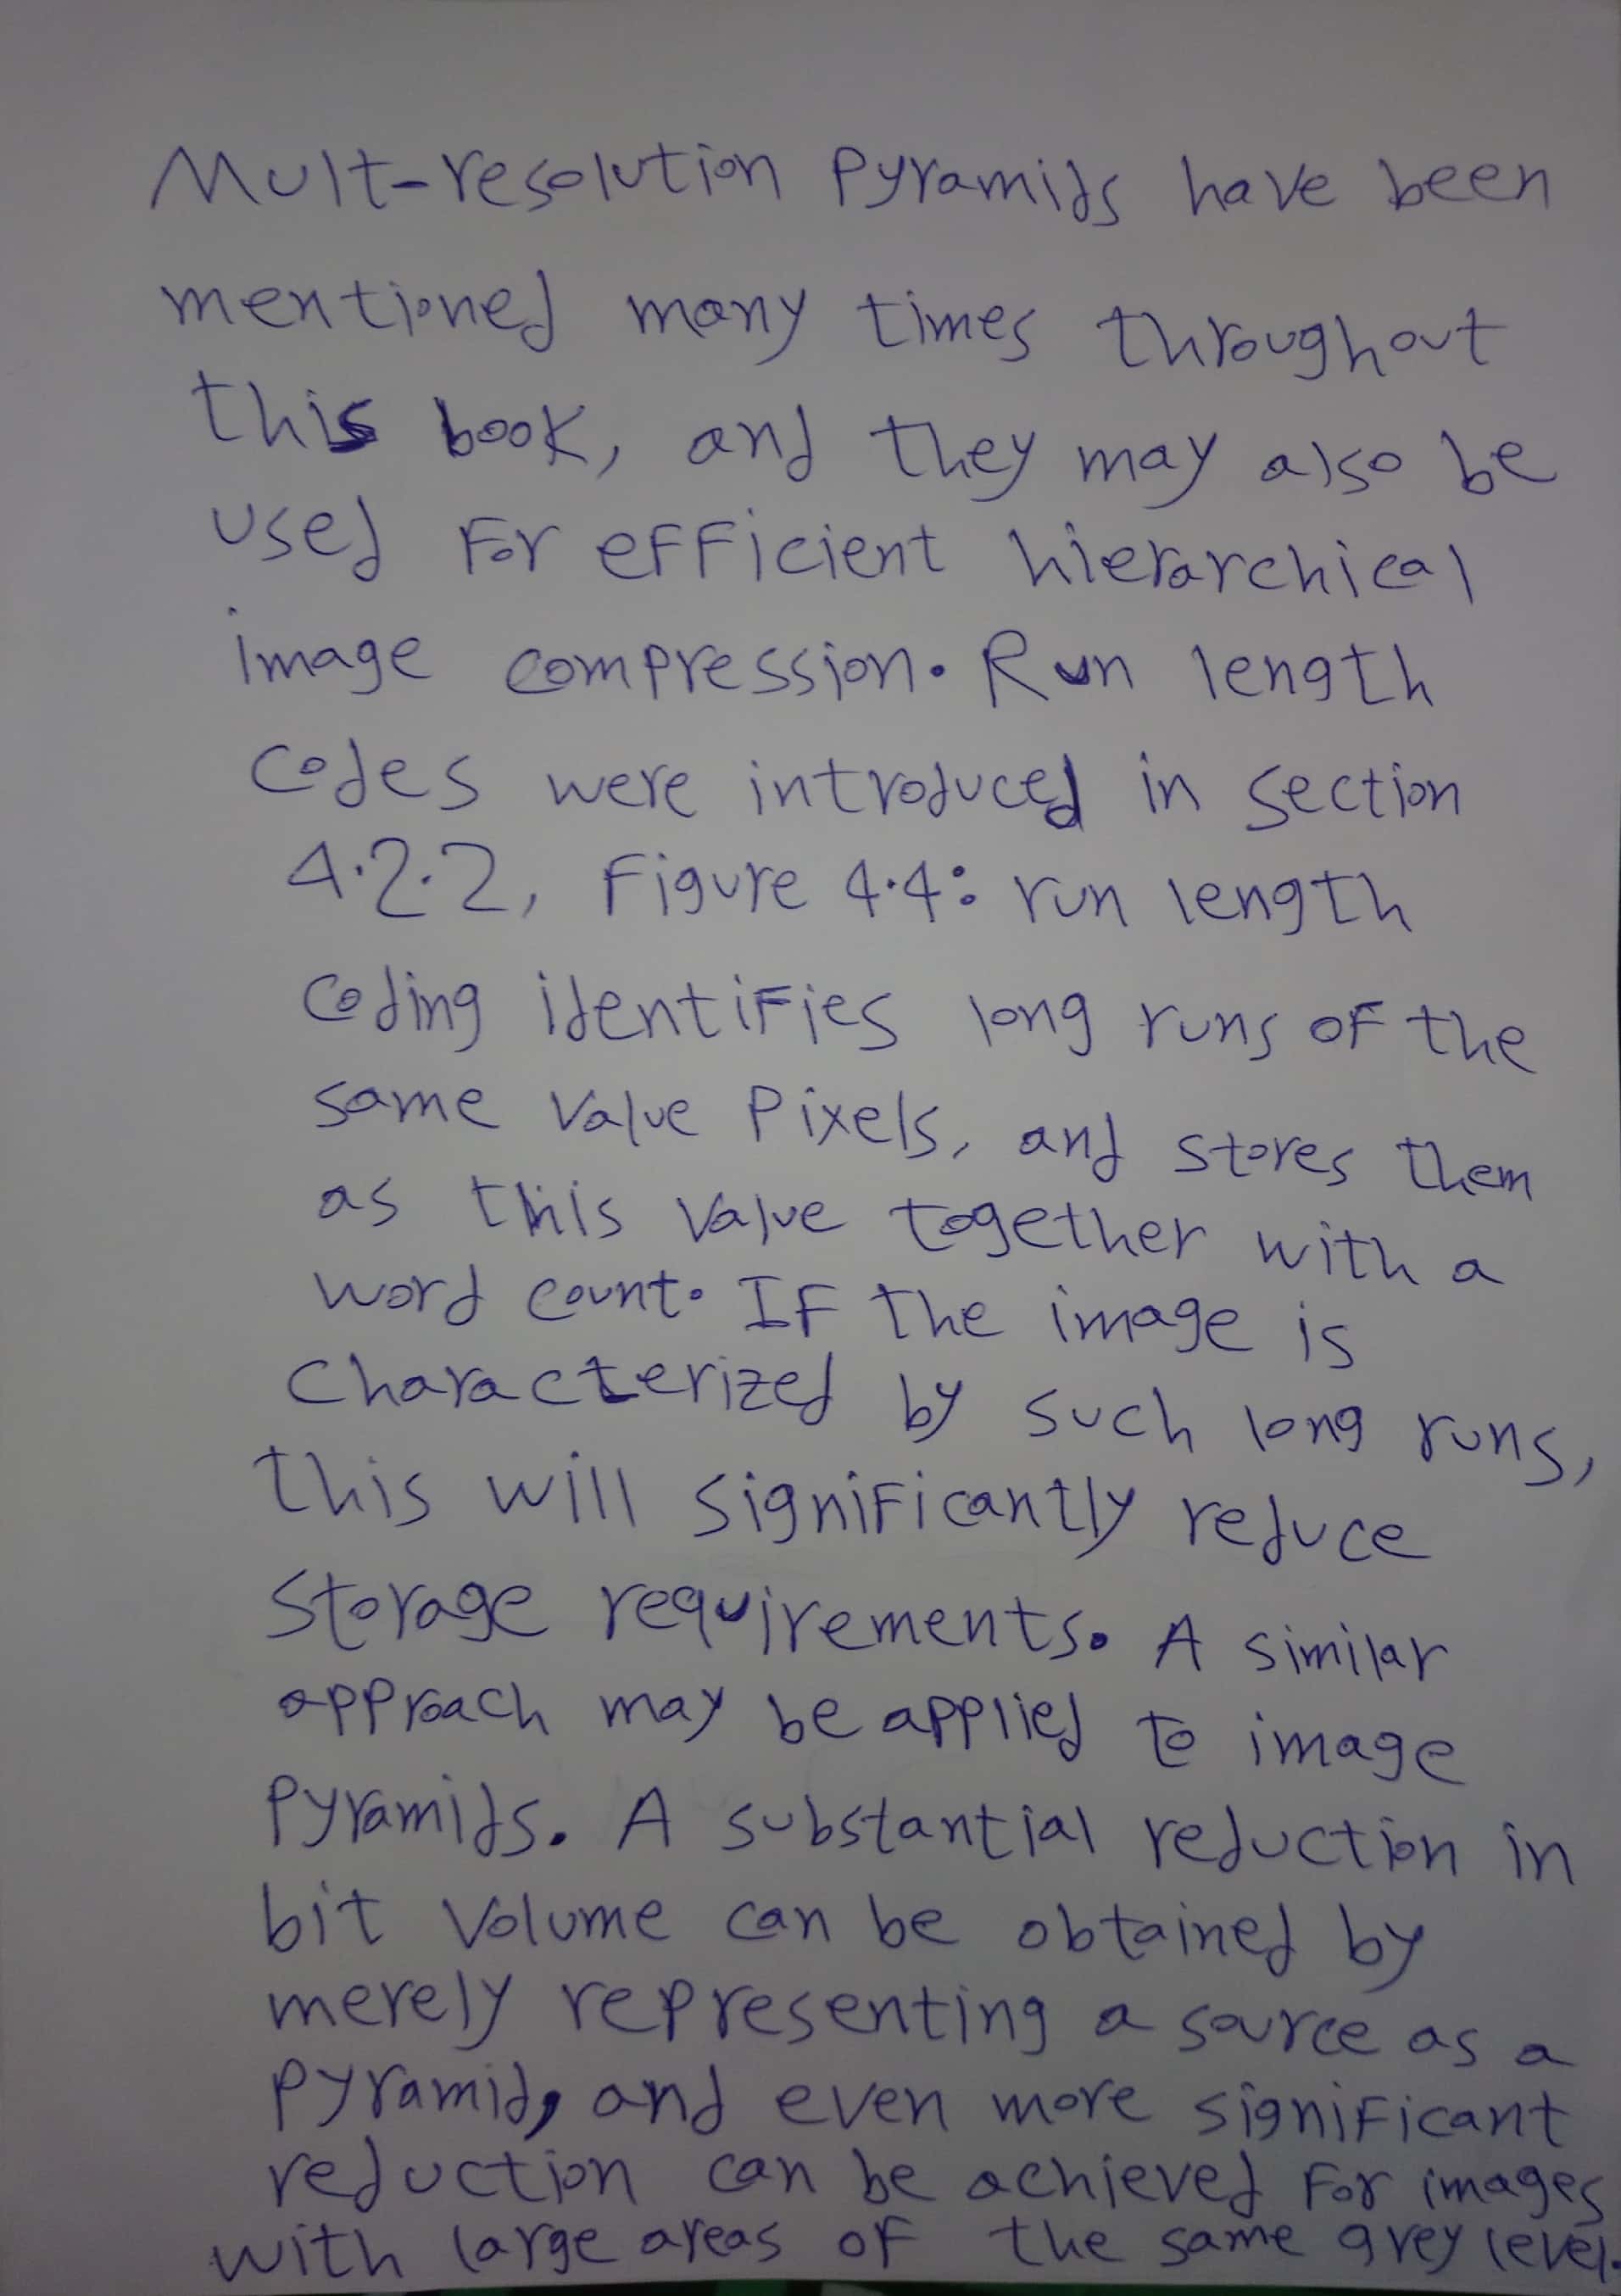 Mult-resolution pyramids have been
mentioned many times throughout
this book, and they may also be
used for efficient hierarchical
image compression. Run length
codes were introduced in section
4.2.2, Figure 4.4: run length
coding identifies long runs of the
same value pixels, and stores them
as this value together with a
word count. If the image is
characterized by such long runs,
this will significantly reduce
storage requirements. A similar
approach may be applied to image
pyramids. A substantial reduction in
bit volume can be obtained by
merely representing a source as a
pyramid, and even more significant
reduction can be achieved for images
with large areas of the same grey level.